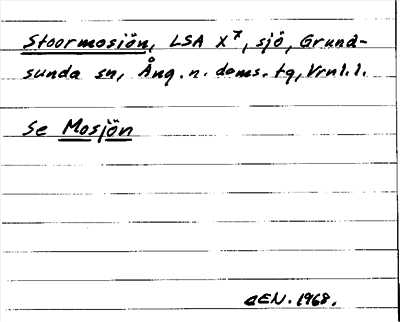 Stoormosiön, LSA X 7, sjö, Grund-
sunda sn, Ång. n. doms. tg, Vrnl. l.
Se Mosjön
CEN. 1968.